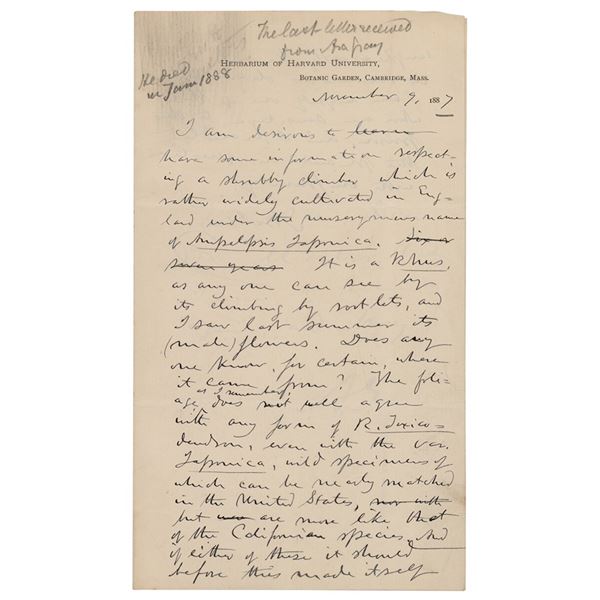 The last letter received
from Asa Gray
He died
in Jany 1888
HERBARIUM OF HARVARD UNIVERSITY,
BOTANIC GARDEN, CAMBRIDGE, MASS.
November 9, 1887
I am desirous to learn
have some information respect-
ing a shrubby climber which is
rather widely cultivated in Eng-
land under the nurserymans name
of Ampelopsis Japonica. Six or
seven years It is a Rhus,
as any one can see by
its climbing by rootlets, and
I saw last summer its
(male) flowers. Does any
one know, for certain, where
it came from? The foli-
as I remember,
age does not well agree
with any form of R. Toxico-
dendron, even with the var.
Japonica, wild specimens of
which can be nearly matched
in the United States, nor with
but are more like that
of the Californian species. And
if either of these it should
before this made itself